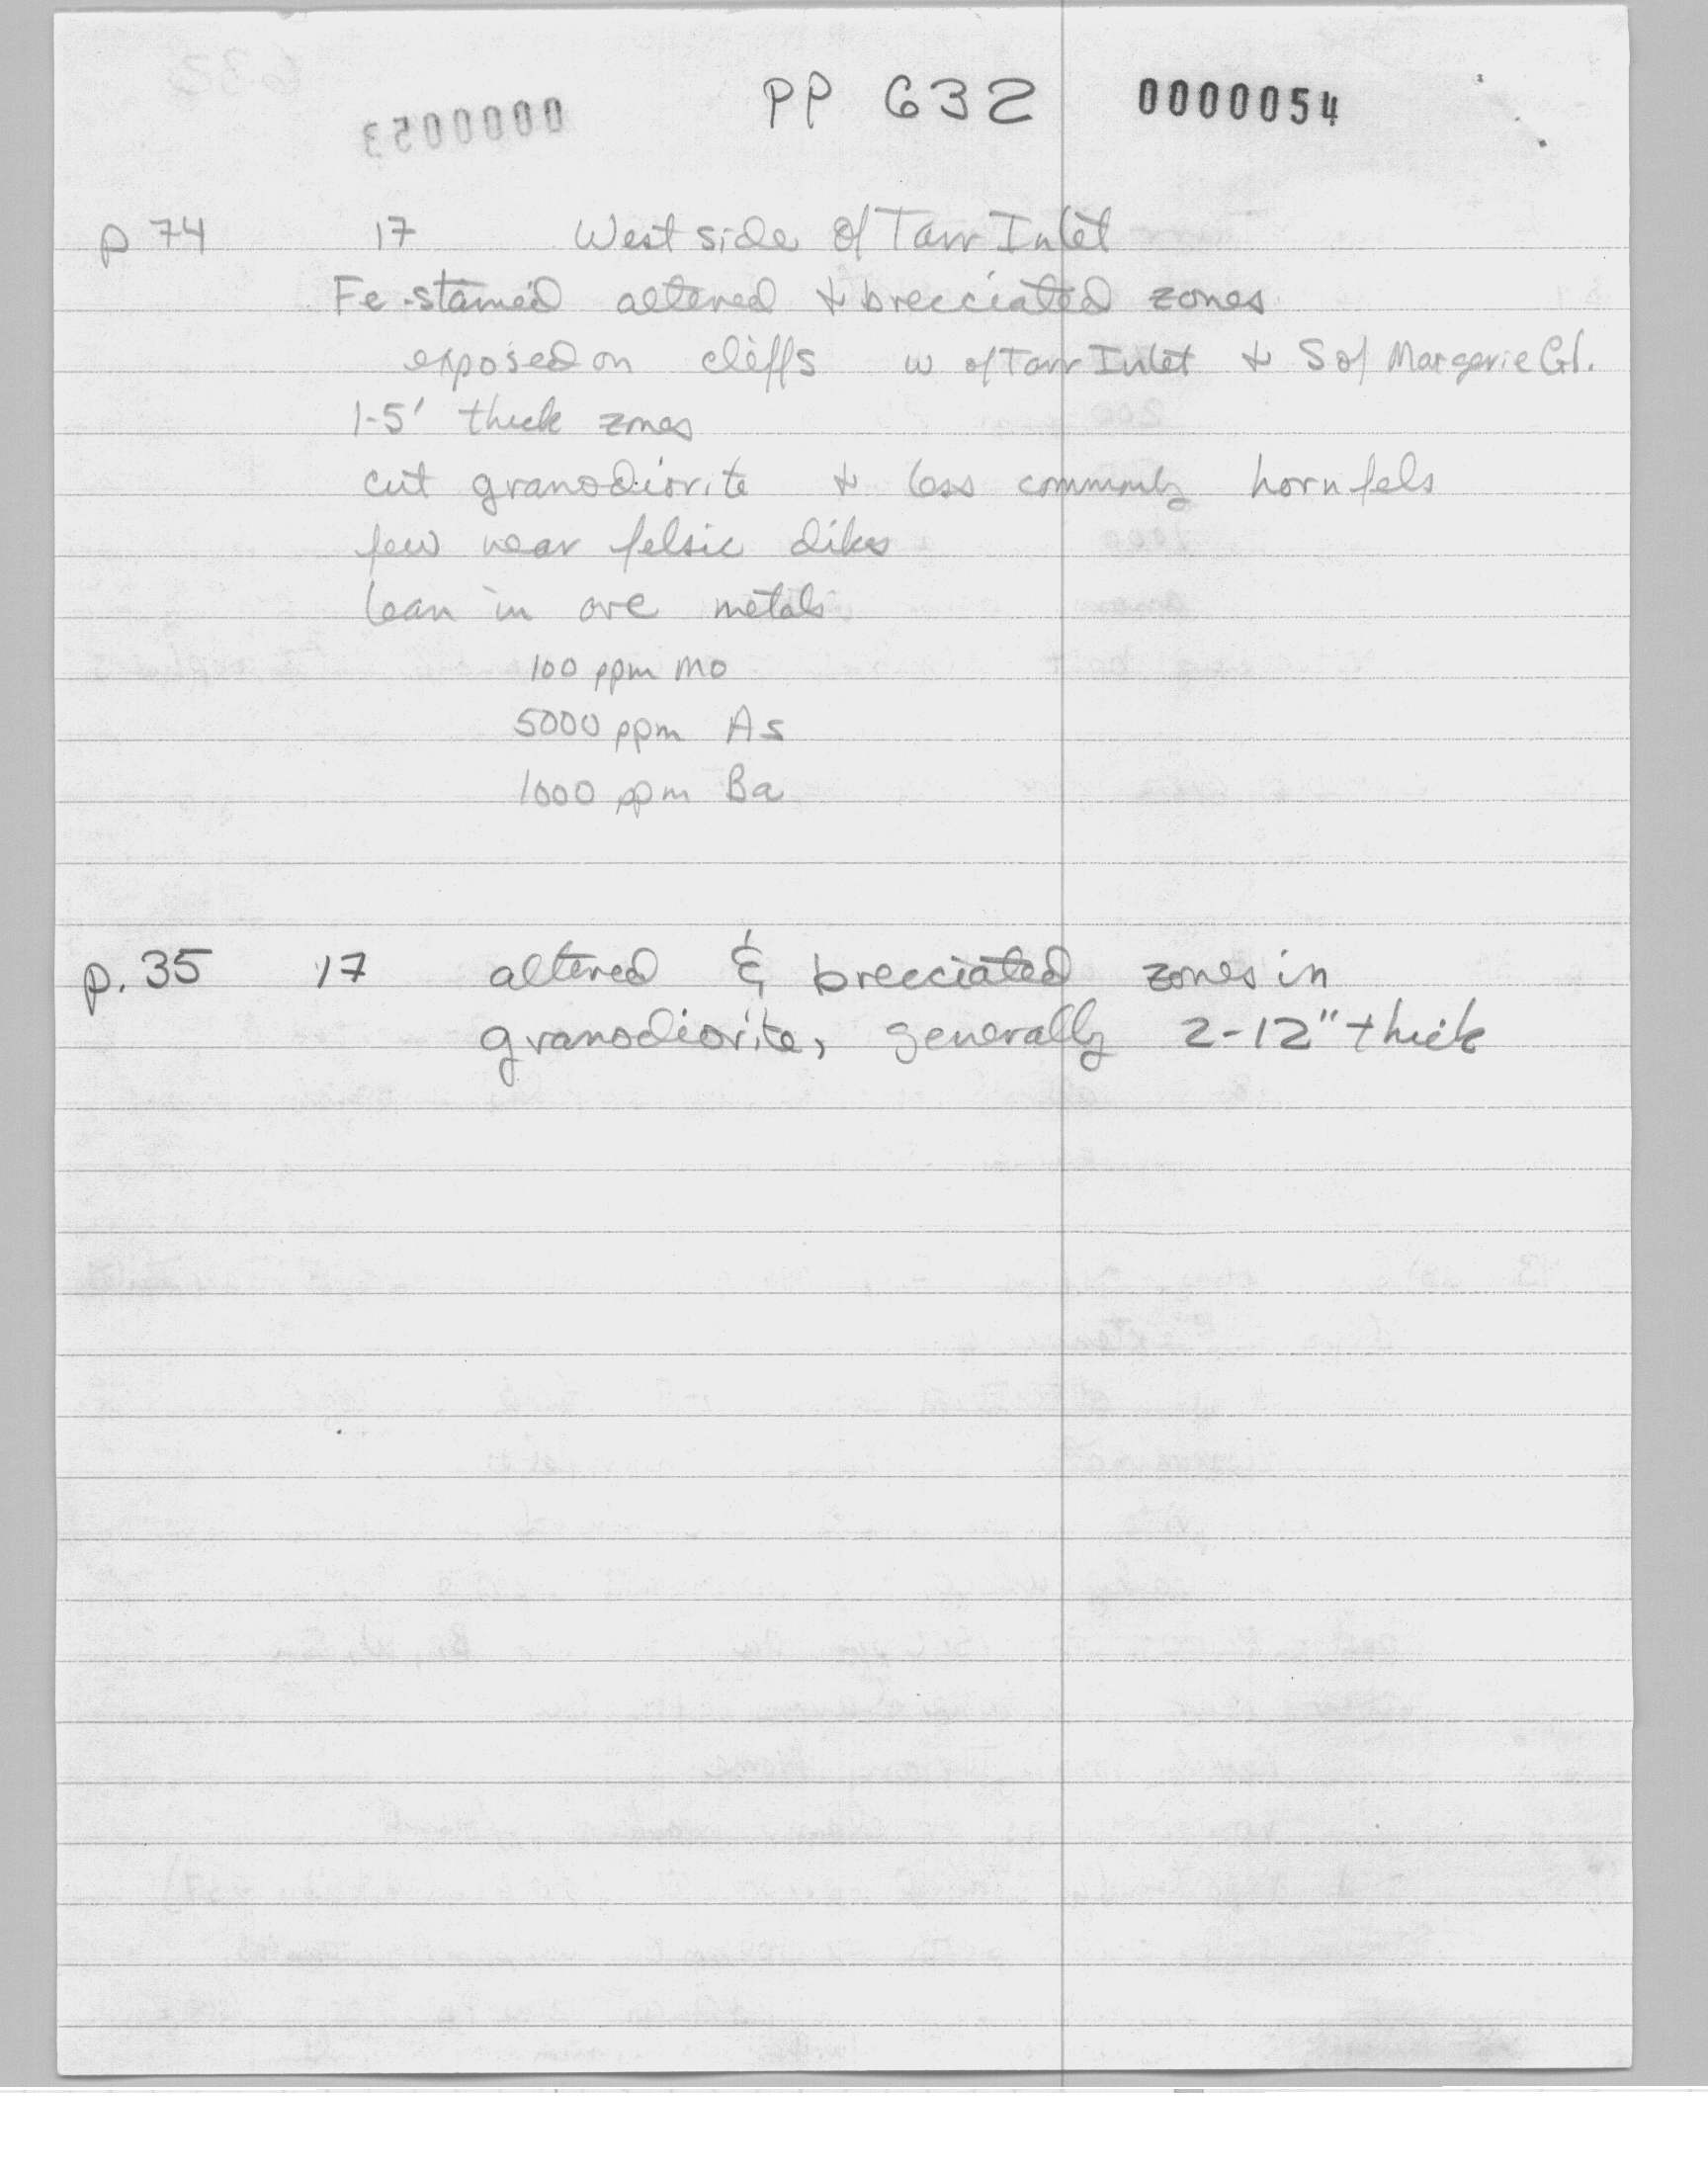 PP 632 0000054
0000053
p 74 17 West side of Tarr Inlet
Fe-stained altered & brecciated zones
exposed on cliffs w of Tarr Inlet & S of Margerie Gl.
1-5' thick zones
cut granodiorite & less commonly hornfels
few near felsic dikes
lean in ore metals
100 ppm Mo
5000 ppm As
1000 ppm Ba
p. 35 17 altered & brecciated zones in
granodiorite, generally 2-12" thick